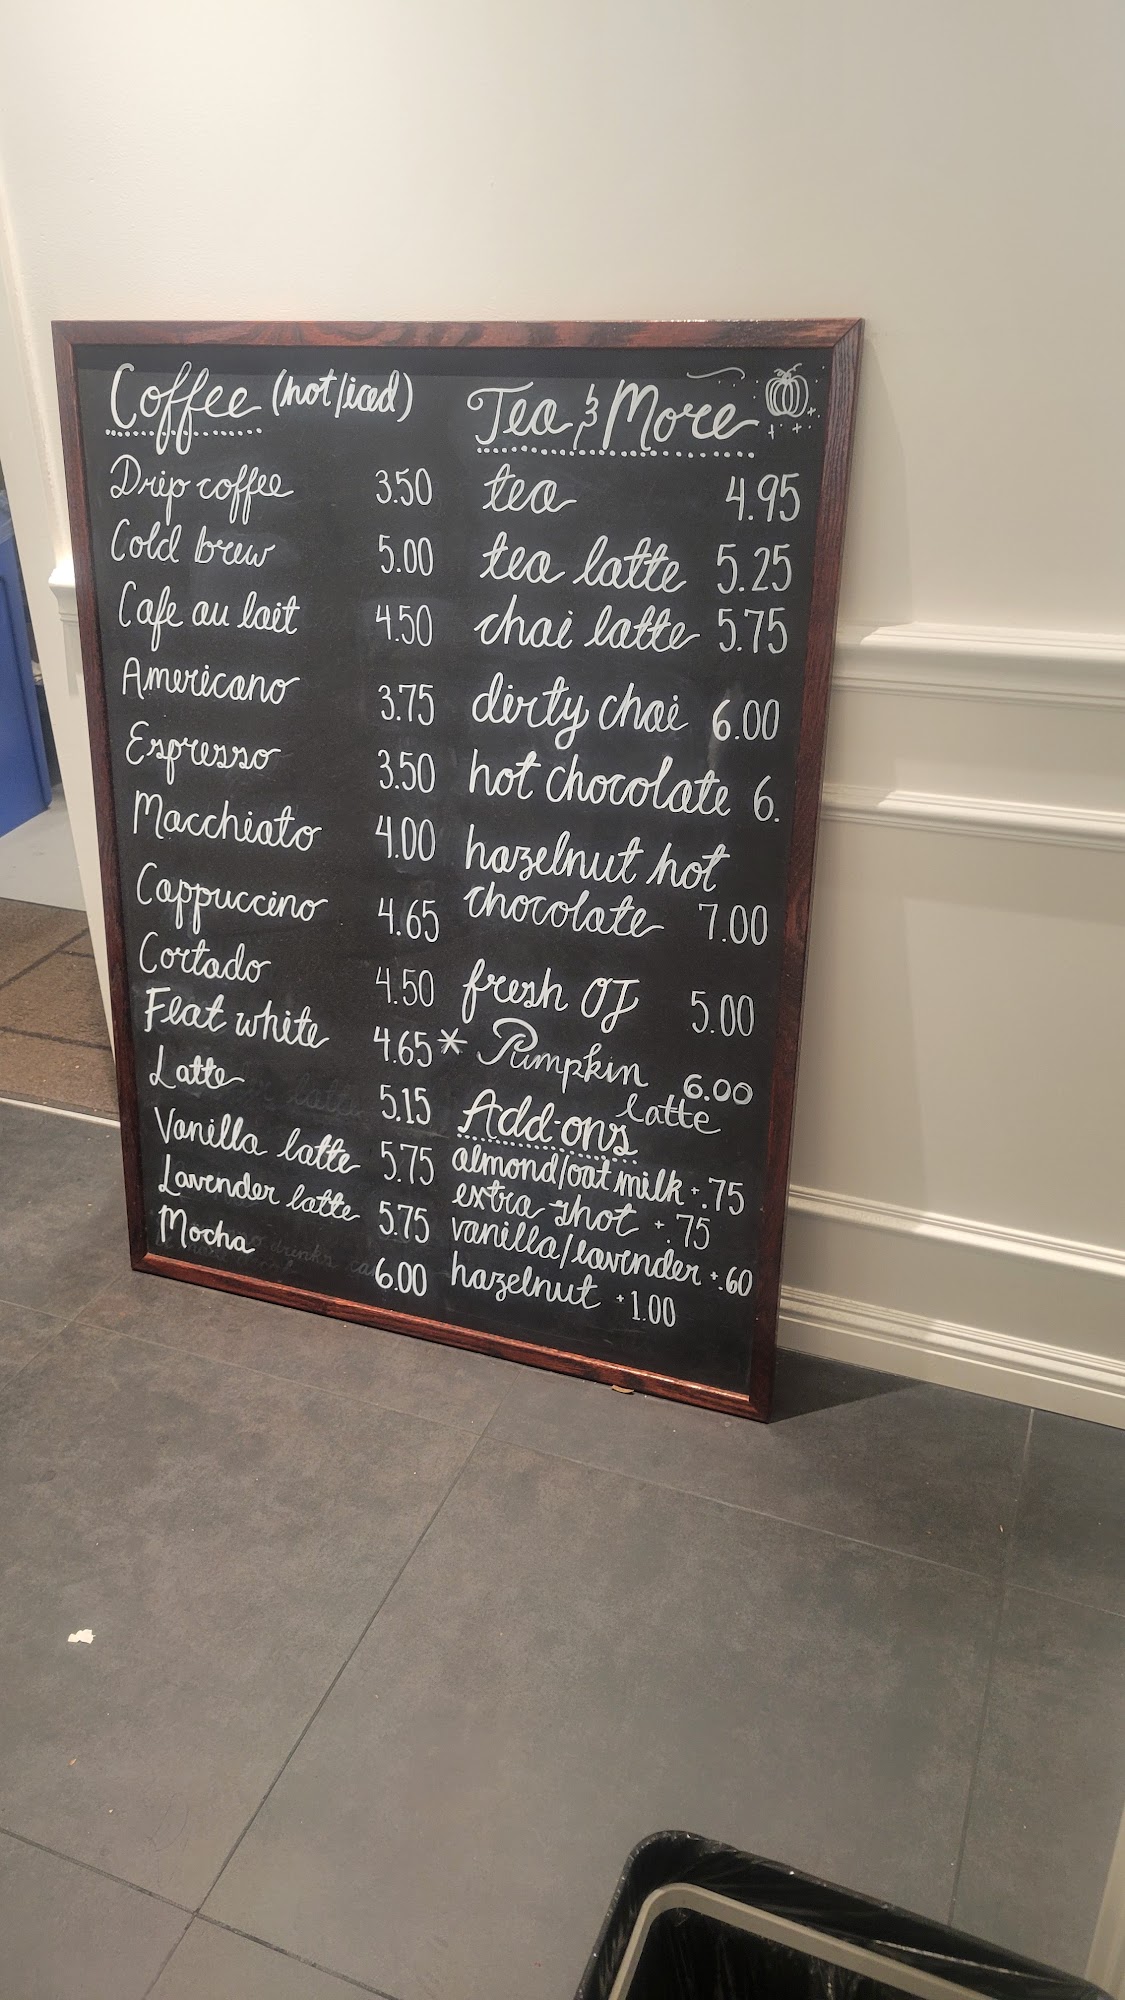 Coffee (hot/iced)
Drip coffee 3.50
Cold brew 5.00
Cafe au lait 4.50
Americano 3.75
Espresso 3.50
Macchiato 4.00
Cappuccino 4.65
Cortado 4.50
Flat white 4.65
Latte 5.15
Vanilla latte 5.75
Lavender latte 5.75
Mocha 6.00
Tea & More
tea 4.95
tea latte 5.25
chai latte 5.75
dirty chai 6.00
hot chocolate 6.
hazelnut hot
chocolate 7.00
fresh OJ 5.00
* Pumpkin 6.00
latte
Add-ons
almond/oat milk +.75
extra shot +.75
vanilla/lavender +.60
hazelnut +1.00